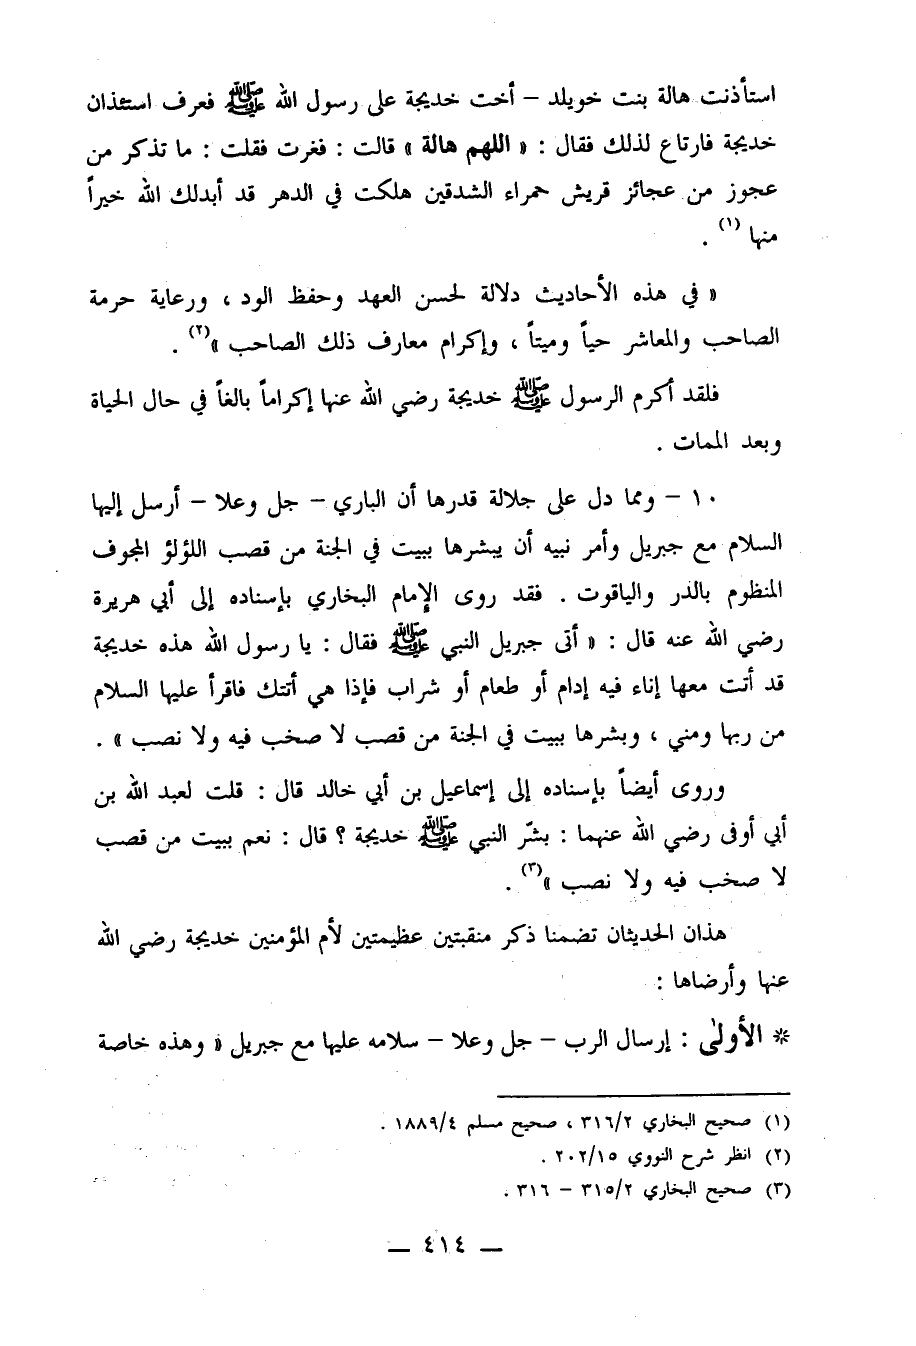 استأذنت هالة بنت خويلد – أخت خديجة على رسول الله ﷺ فعرف استئذان
خديجة فارتاع لذلك فقال : « اللهم هالة » قالت : فغرت فقلت : ما تذكر من
عجوز من عجائز قريش حمراء الشدقين هلكت في الدهر قد أبدلك الله خيراً
منها (١) .
« في هذه الأحاديث دلالة لحسن العهد وحفظ الود ، ورعاية حرمة
الصاحب والمعاشر حياً وميتاً ، وإكرام معارف ذلك الصاحب »(٢) .
فلقد أكرم الرسول ﷺ خديجة رضي الله عنها إكراماً بالغاً في حال الحياة
وبعد الممات .
١٠ – ومما دل على جلالة قدرها أن الباري – جل وعلا – أرسل إليها
السلام مع جبريل وأمر نبيه أن يبشرها ببيت في الجنة من قصب اللؤلؤ المجوف
المنظوم بالدر والياقوت . فقد روى الإمام البخاري بإسناده إلى أبي هريرة
رضي الله عنه قال : « أتى جبريل النبي ﷺ فقال : يا رسول الله هذه خديجة
قد أتت معها إناء فيه إدام أو طعام أو شراب فإذا هي أتتك فاقرأ عليها السلام
من ربها ومني ، وبشرها ببيت في الجنة من قصب لا صخب فيه ولا نصب » .
وروى أيضاً بإسناده إلى إسماعيل بن أبي خالد قال : قلت لعبد الله بن
أبي أوفى رضي الله عنهما : بشّر النبي ﷺ خديجة ؟ قال : نعم ببيت من قصب
لا صخب فيه ولا نصب »(٣) .
هذان الحديثان تضمنا ذكر منقبتين عظيمتين لأم المؤمنين خديجة رضي الله
عنها وأرضاها :
* الأولى : إرسال الرب – جل وعلا – سلامه عليها مع جبريل « وهذه خاصة
(١) صحيح البخاري ٣١٦/٢ ، صحيح مسلم ١٨٨٩/٤ .
(٢) انظر شرح النووي ٢٠٢/١٥ .
(٣) صحيح البخاري ٣١٥/٢ – ٣١٦ .
— ٤١٤ —